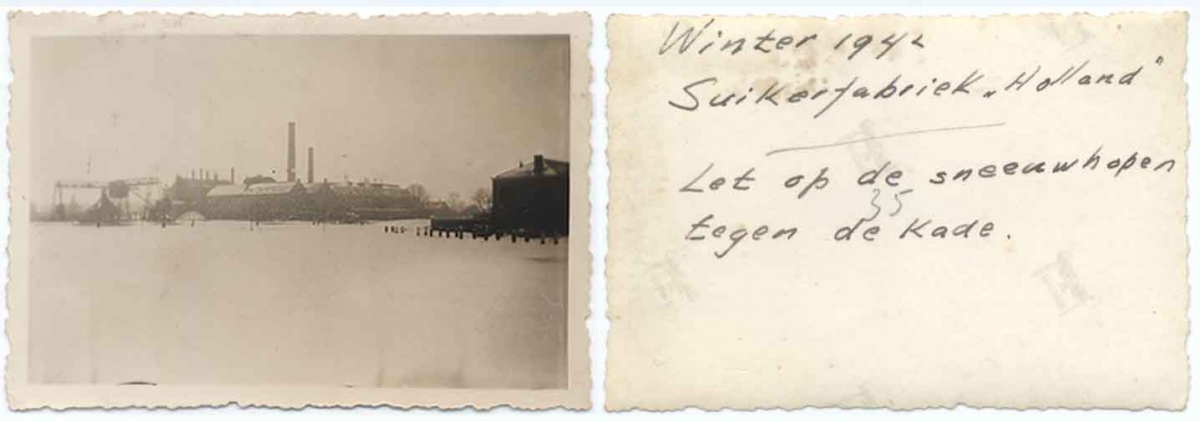 Winter 1942
Suikerfabriek „Holland"
Let op de sneeuwhopen
35
tegen de Kade.